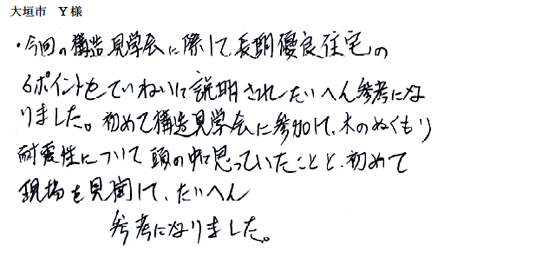 大垣市 Y様
・今回の構造見学会に際して、長期優良住宅の
6ポイントをていねいに説明されたいへん参考にな
りました。初めて構造見学会に参加して、木のぬくもり
耐震性について頭の中で思っていたことと、初めて
現場を見聞して、たいへん
参考になりました。